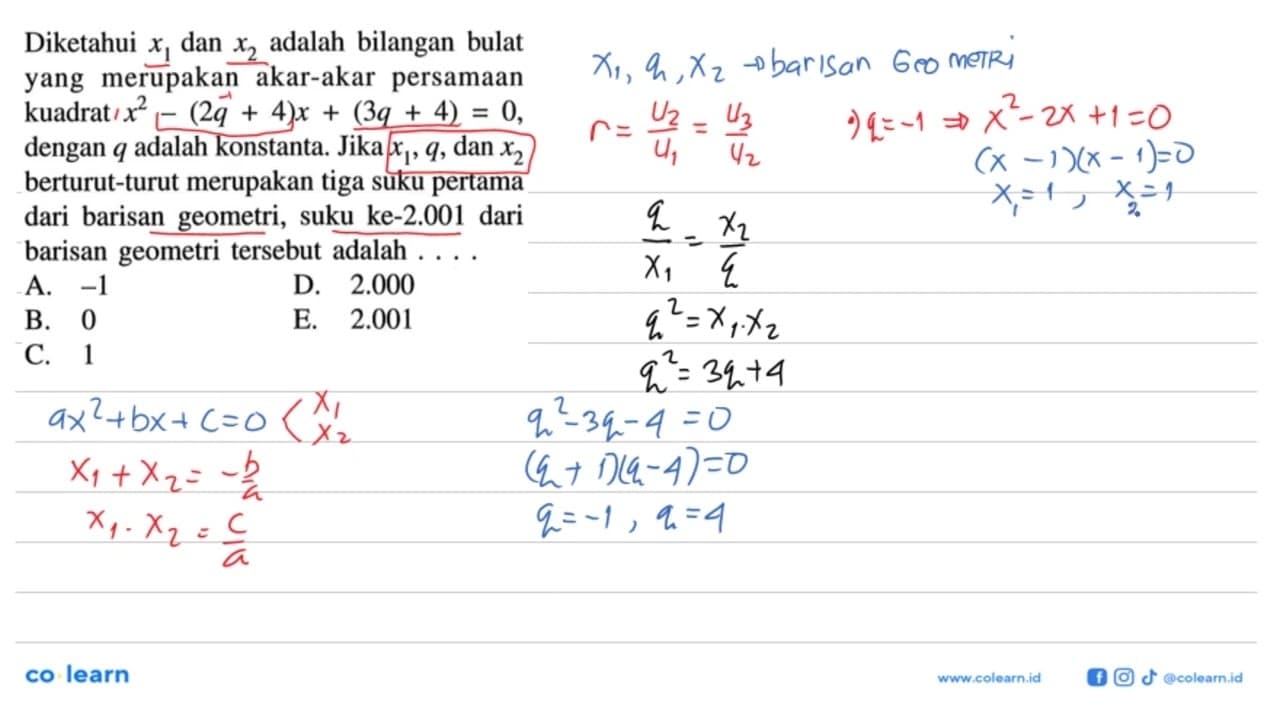 Diketahui x₁ dan x₂ adalah bilangan bulat
yang merupakan akar-akar persamaan
kuadrat x² − (2q + 4)x + (3q + 4) = 0,
dengan q adalah konstanta. Jika x₁, q, dan x₂
berturut-turut merupakan tiga suku pertama
dari barisan geometri, suku ke-2.001 dari
barisan geometri tersebut adalah . . . .
A. −1 D. 2.000
B. 0 E. 2.001
C. 1
ax²+bx+c=0 < x₁ x₂
x₁ + x₂ = -b/a
x₁ . x₂ = c/a
x₁, q, x₂ → barisan GeoMETRi
r = U₂/U₁ = U₃/U₂
q/x₁ = x₂/q
q² = x₁.x₂
q² = 3q+4
q²-3q-4 = 0
(q + 1)(q-4)=0
q=-1, q=4
•) q=-1 ⇒ x²-2x+1=0
(x -1)(x-1)=0
x₁=1, x₂=1
co learn
www.colearn.id @colearn.id